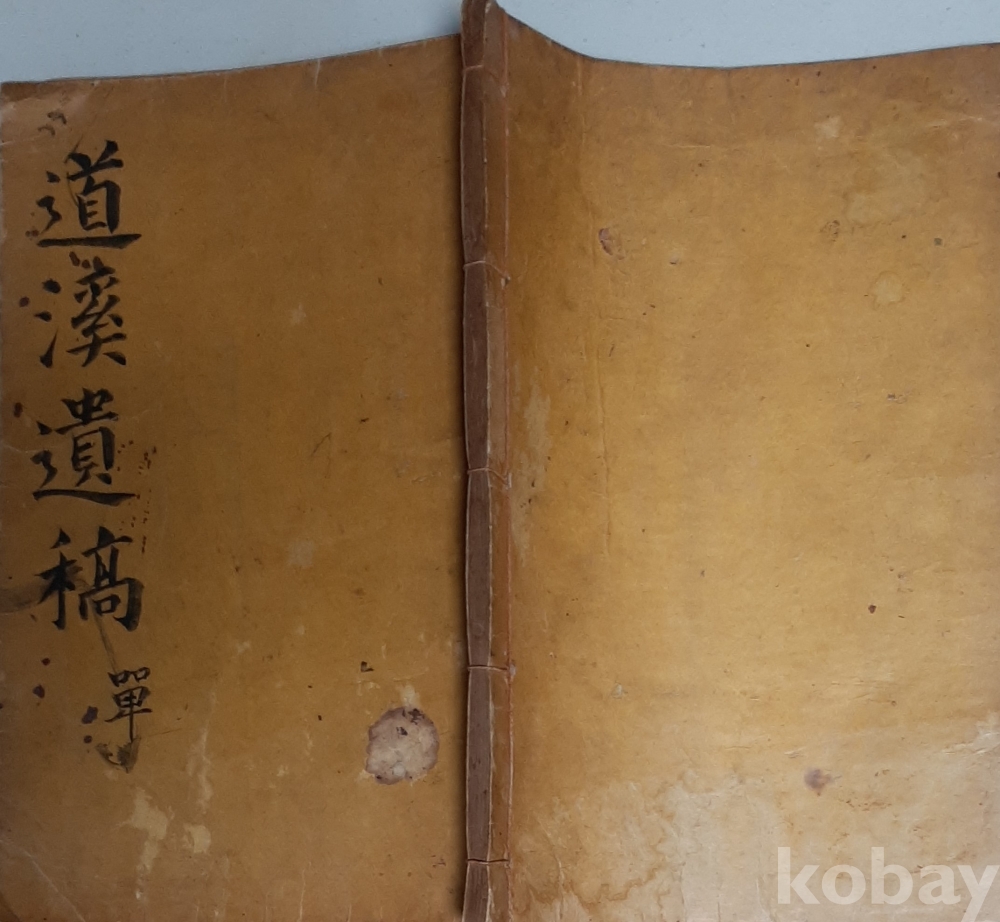 道溪遺稿 單
kobay